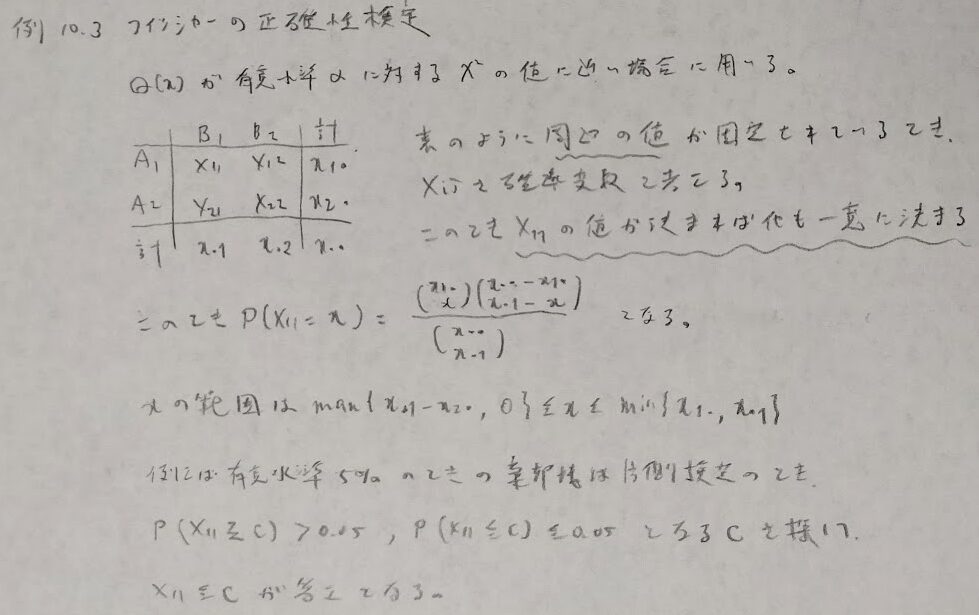 例 10.3 フィッシャーの正確性検定
Q(x) が 有意水準 α に対する χ² の値に近い場合に用いる。
B₁ B₂ 計
A₁ X₁₁ X₁₂ x₁.
A₂ X₂₁ X₂₂ x₂.
計 x.₁ x.₂ x..
表のように 周辺の値 が固定されているとき、
Xij を確率変数と考える。
このとき X₁₁ の値が決まれば他も一意に決まる
このとき P(X₁₁ = x) = (x₁. x)(x.. - x₁. x.₁ - x) / (x.. x.₁) となる。
xの範囲は max{x.₁ - x₂., 0} ≦ x ≦ min{x₁., x.₁}
例えば有意水準 5% のときの棄却域は片側検定のとき、
P(X₁₁ ≧ C) > 0.05, P(X₁₁ ≦ C) ≦ 0.05 となる C を探し、
X₁₁ ≦ C が答えとなる。